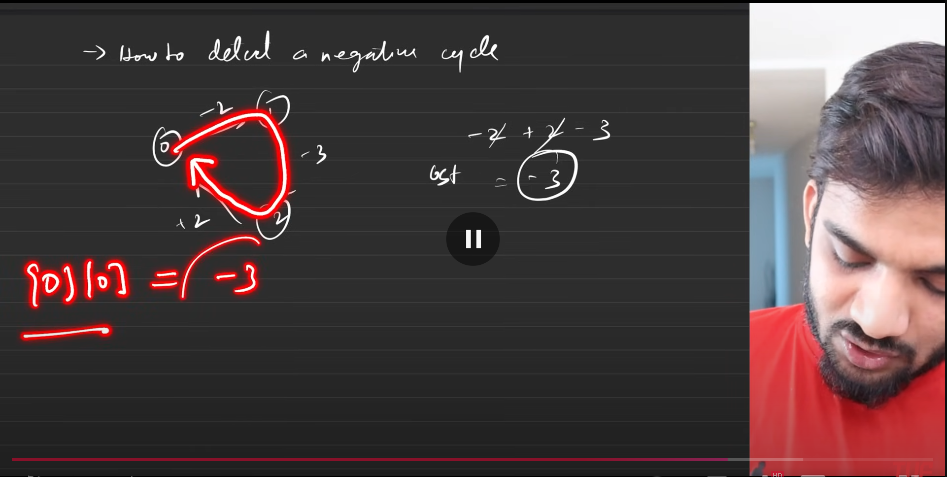 → How to detect a negative cycle
-2 1
0 -3
+2 2
-2 + 2 - 3
cost = -3
[0][0] = -3
HD